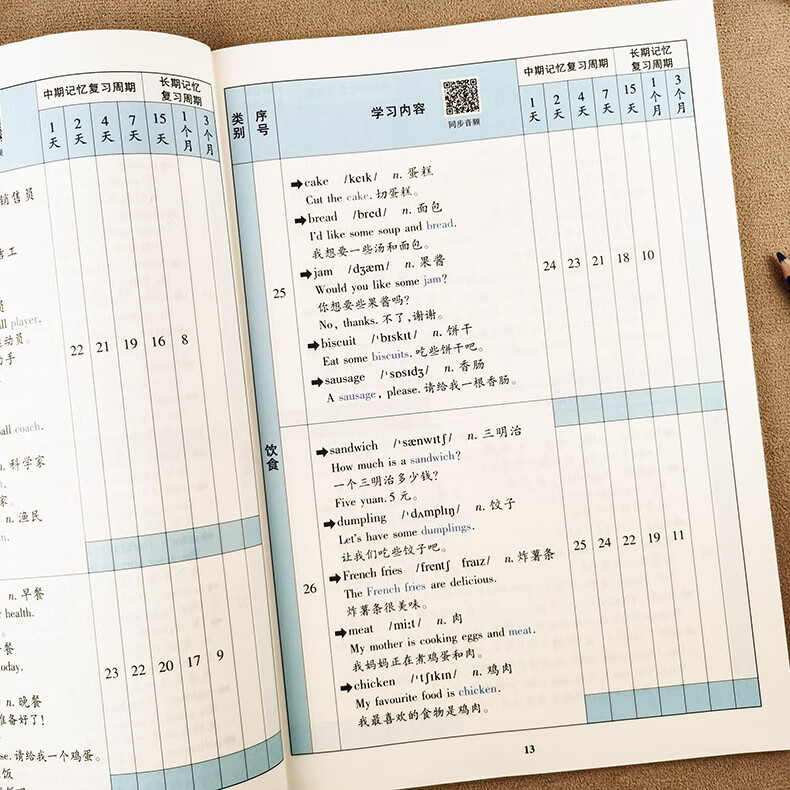 中期记忆复习周期
长期记忆
复习周期
1天 2天 4天 7天 15天 1个月 3个月
销售员
ll player.
动员。
22 21 19 16 8
all coach.
n. 科学家
家。
n. 渔民
n. 早餐
health.
餐
oday.
23 22 20 17 9
n. 晚餐
准备好了！
se. 请给我一个鸡蛋。
饭
类别
序号
学习内容
同步音频
中期记忆复习周期
长期记忆
复习周期
1天 2天 4天 7天 15天 1个月 3个月
饮食
25
➡cake /keɪk/ n. 蛋糕
Cut the cake. 切蛋糕。
➡bread /bred/ n. 面包
I'd like some soup and bread.
我想要一些汤和面包。
➡jam /dʒæm/ n. 果酱
Would you like some jam?
你想要些果酱吗?
No, thanks. 不了,谢谢。
➡biscuit /ˈbɪskɪt/ n. 饼干
Eat some biscuits. 吃些饼干吧。
➡sausage /ˈsɒsɪdʒ/ n. 香肠
A sausage, please. 请给我一根香肠。
24 23 21 18 10
26
➡sandwich /ˈsænwɪtʃ/ n. 三明治
How much is a sandwich?
一个三明治多少钱?
Five yuan. 5 元。
➡dumpling /ˈdʌmplɪŋ/ n. 饺子
Let's have some dumplings.
让我们吃些饺子吧。
➡French fries /frentʃ fraɪz/ n. 炸薯条
The French fries are delicious.
炸薯条很美味。
➡meat /miːt/ n. 肉
My mother is cooking eggs and meat.
我妈妈正在煮鸡蛋和肉。
➡chicken /ˈtʃɪkɪn/ n. 鸡肉
My favourite food is chicken.
我最喜欢的食物是鸡肉。
25 24 22 19 11
13